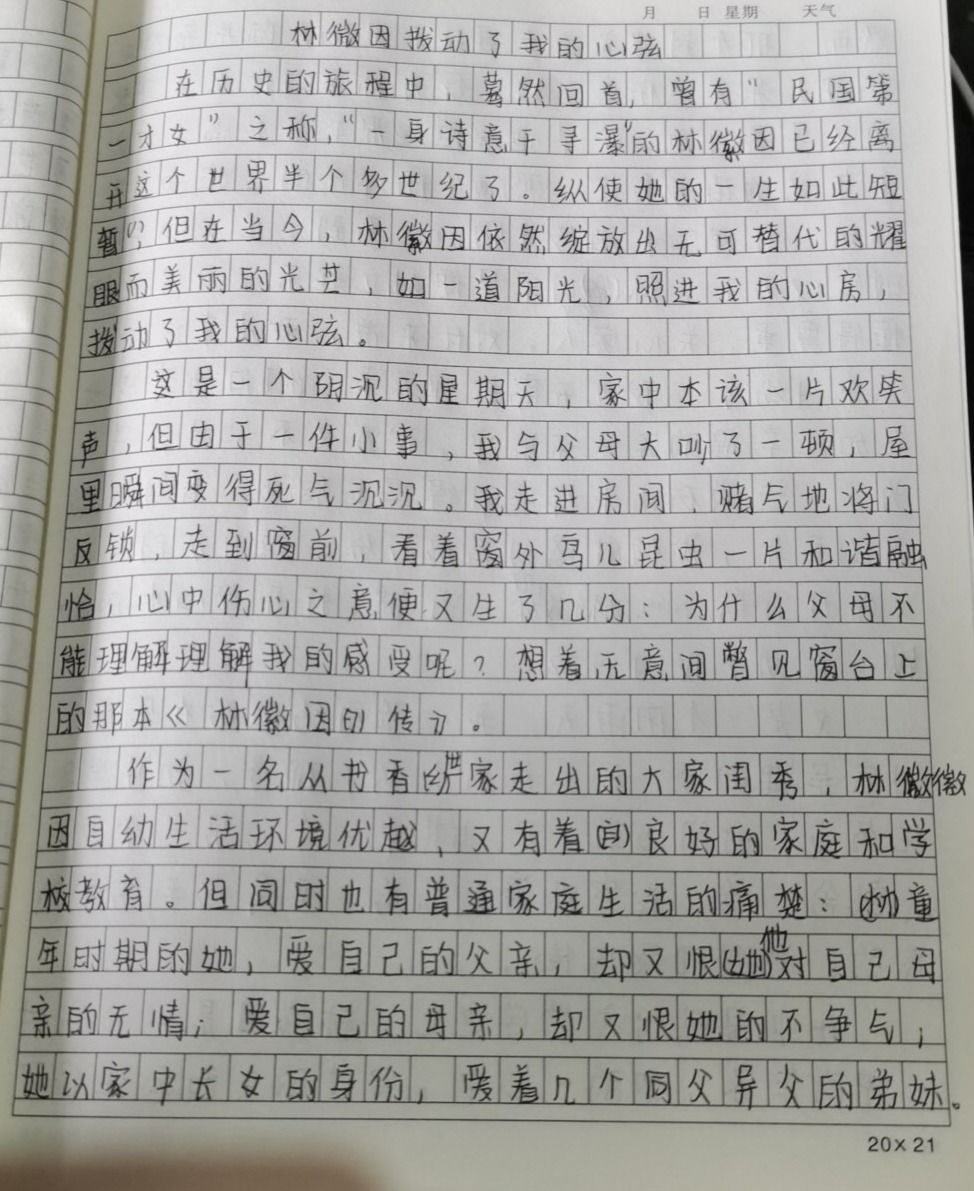 月 日 星期 天气
林徽因拨动了我的心弦
在历史的旅程中，蓦然回首，曾有“民国第
一才女”之称，“一身诗意千寻瀑”的林徽因已经离
开这个世界半个多世纪了。纵使她的一生如此短
暂，但在当今，林徽因依然绽放出无可替代的耀
眼而美丽的光芒，如一道阳光，照进我的心房，
拨动了我的心弦。
这是一个阴沉的星期天，家中本该一片欢笑
声，但由于一件小事，我与父母大吵了一顿，屋
里瞬间变得死气沉沉。我走进房间，赌气地将门
反锁，走到窗前，看着窗外鸟儿昆虫一片和谐融
恰，心中伤心之意便又生了几分：为什么父母不
能理解理解我的感受呢？想着无意间瞥见窗台上
的那本《林徽因的传》。
作为一名从书香世家走出的大家闺秀，林徽
因自幼生活环境优越，又有着良好的家庭和学
校教育。但同时也有普通家庭生活的痛楚：童
年时期的她，爱自己的父亲，却又恨他对自己母
亲的无情；爱自己的母亲，却又恨她的不争气；
她以家中长女的身份，爱着几个同父异父的弟妹。
20×21